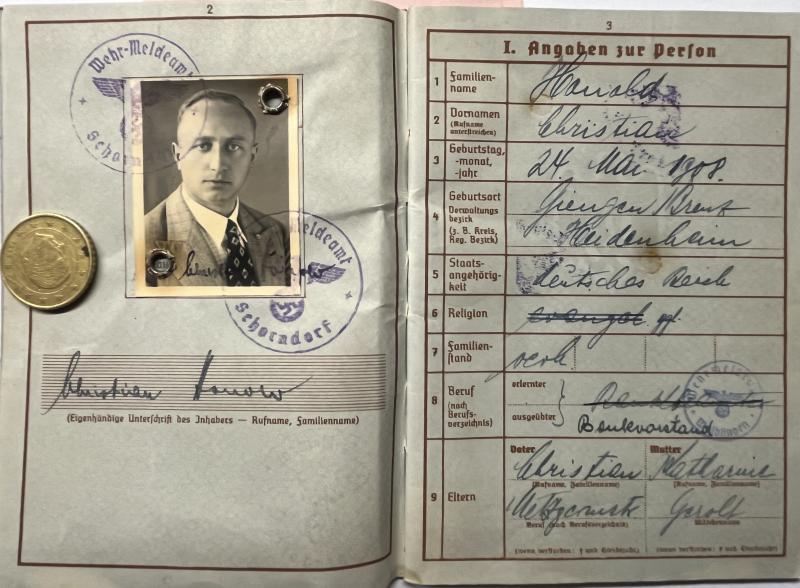 2
Wehr-Meldeamt
Schorndorf
Wehr-Meldeamt
Schorndorf
Christian Honold
(Eigenhändige Unterschrift des Inhabers — Rufname, Familienname)
3
I. Angaben zur Person
1 Familien-
name
Honold
2 Vornamen
(Rufname
unterstreichen)
Christian
3 Geburtstag,
-monat,
-jahr
24. Mai 1908.
4 Geburtsort
Verwaltungs
bezirk
(z. B. Kreis,
Reg. Bezirk)
Giengen Brenz
Heidenheim
5 Staats-
angehörig-
keit
deutsches Reich
6 Religion
evangel. ggl.
7 Familien-
stand
verh.
8 Beruf
(nach
Berufs-
verzeichnis)
erlernter
ausgeübter
Bankvorstand
9 Eltern
Vater
Christian
(Rufname, Familienname)
Metzgermstr.
Beruf (nach Berufsverzeichnis)
(wenn verstorben: † und Sterbejahr)
Mutter
Katharine
(Rufname, Familienname)
Mädchenname
(wenn verstorben: † und Sterbejahr)